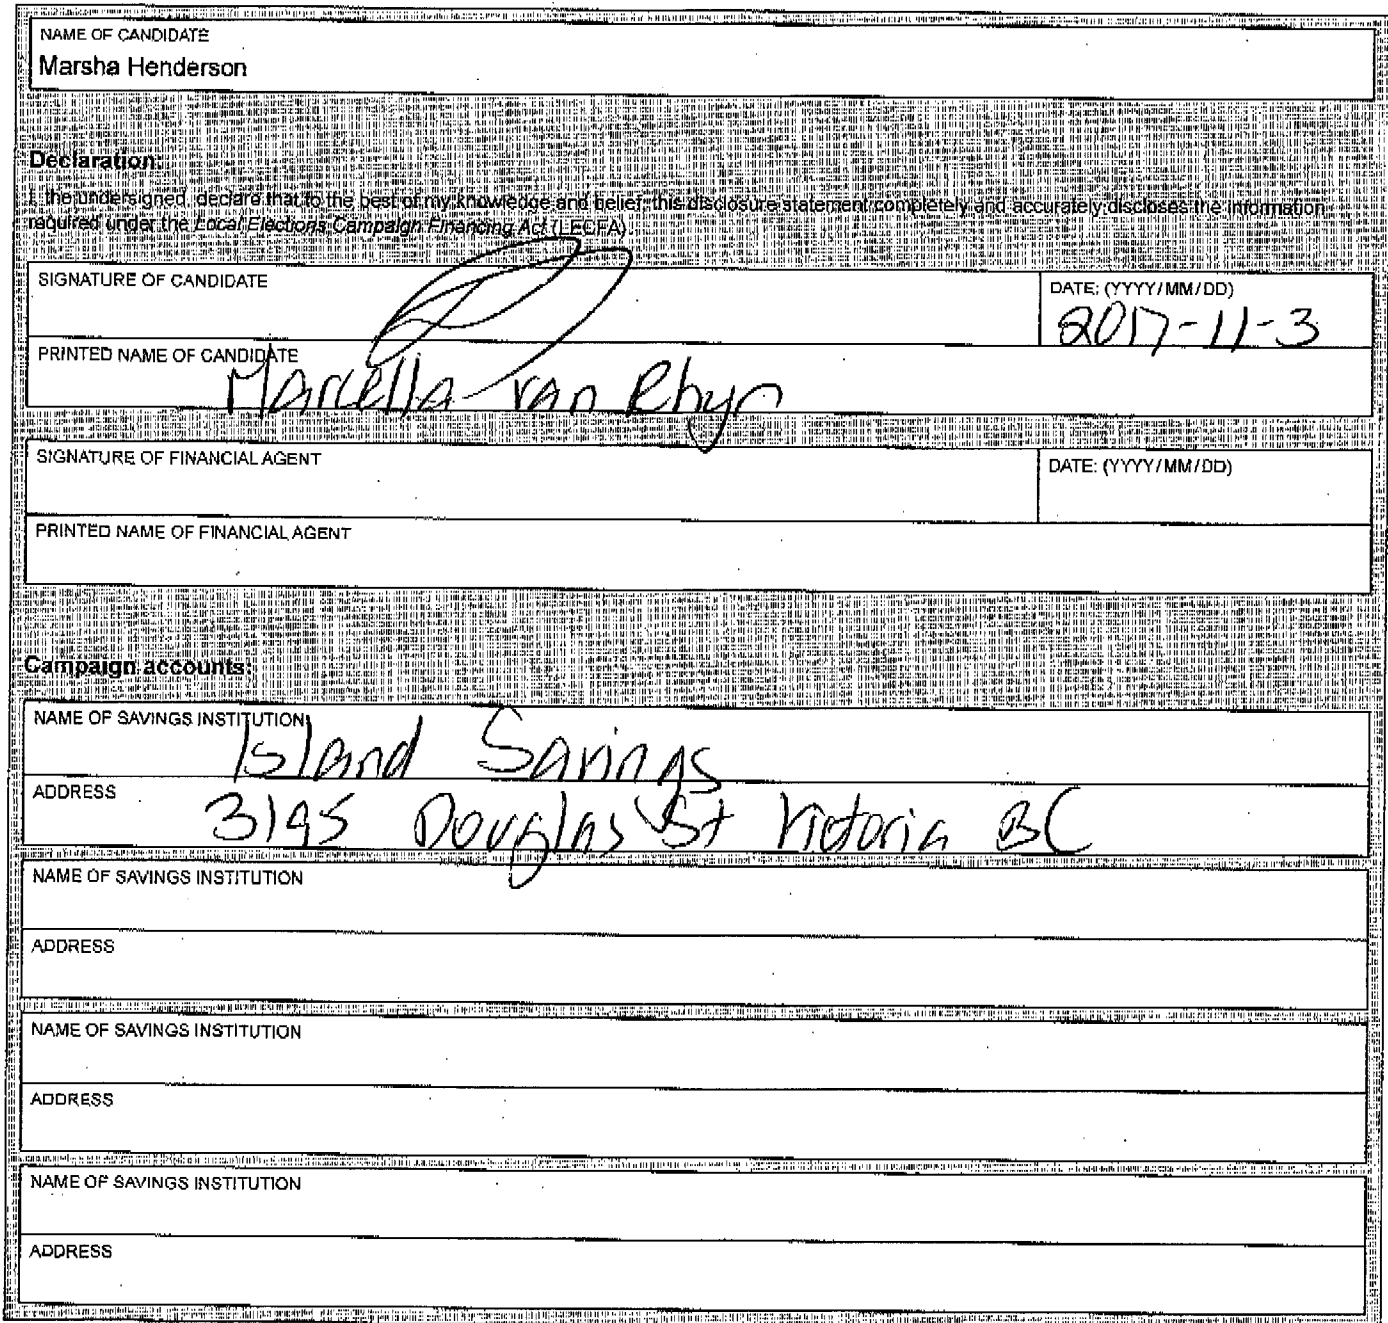 NAME OF CANDIDATE
Marsha Henderson
Declaration:
I, the undersigned, declare that to the best of my knowledge and belief, this disclosure statement completely and accurately discloses the information
required under the Local Elections Campaign Financing Act (LECFA).
SIGNATURE OF CANDIDATE
DATE: (YYYY/MM/DD)
2017-11-3
PRINTED NAME OF CANDIDATE
Marcella van Rhyn
SIGNATURE OF FINANCIAL AGENT
DATE: (YYYY/MM/DD)
PRINTED NAME OF FINANCIAL AGENT
Campaign accounts:
NAME OF SAVINGS INSTITUTION
Island Savings
ADDRESS
3195 Douglas St Victoria BC
NAME OF SAVINGS INSTITUTION
ADDRESS
NAME OF SAVINGS INSTITUTION
ADDRESS
NAME OF SAVINGS INSTITUTION
ADDRESS